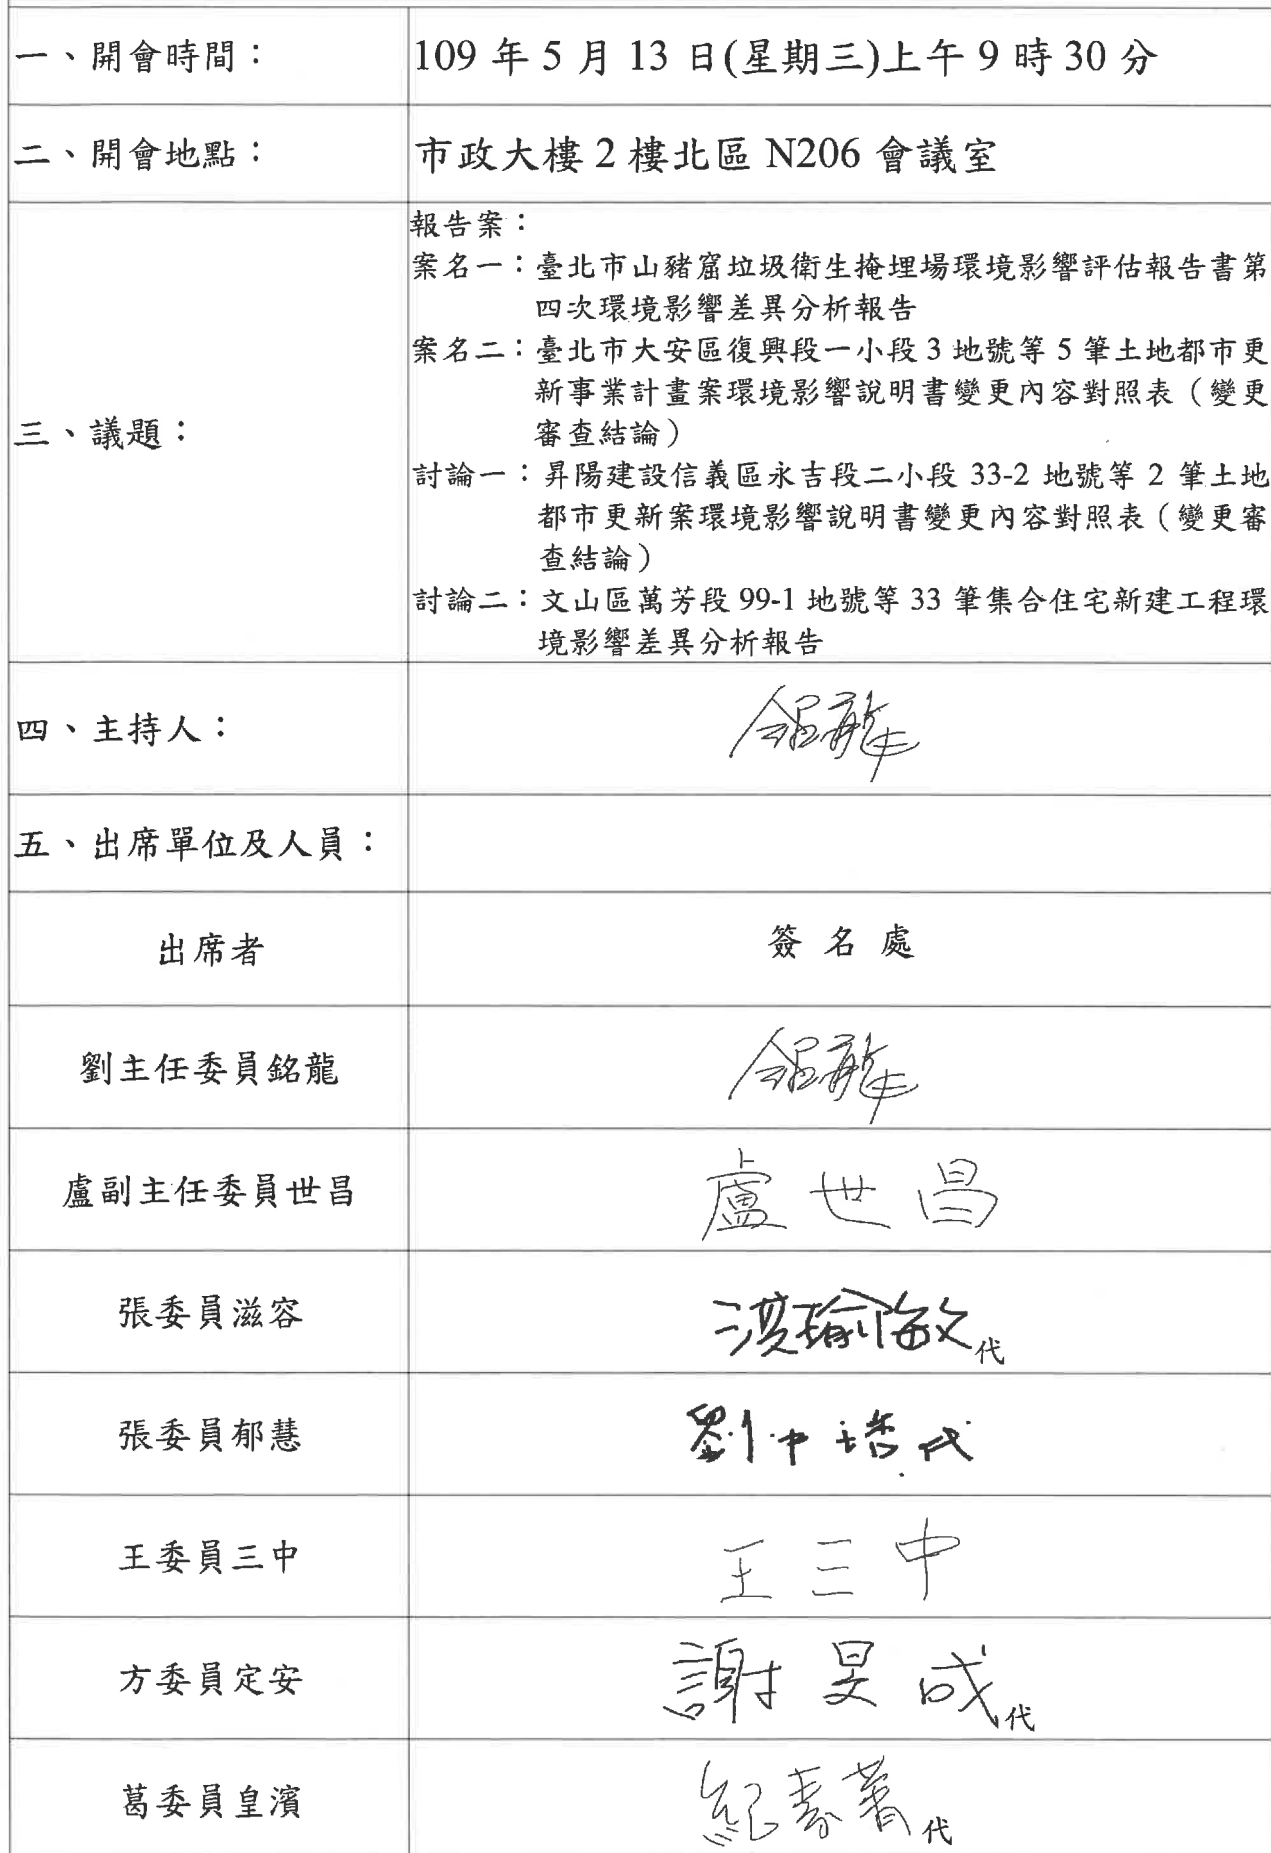 一、開會時間： 109 年 5 月 13 日(星期三)上午 9 時 30 分
二、開會地點： 市政大樓 2 樓北區 N206 會議室
三、議題：
報告案：
案名一：臺北市山豬窟垃圾衛生掩埋場環境影響評估報告書第
四次環境影響差異分析報告
案名二：臺北市大安區復興段一小段 3 地號等 5 筆土地都市更
新事業計畫案環境影響說明書變更內容對照表（變更
審查結論）
討論一：昇陽建設信義區永吉段二小段 33-2 地號等 2 筆土地
都市更新案環境影響說明書變更內容對照表（變更審
查結論）
討論二：文山區萬芳段 99-1 地號等 33 筆集合住宅新建工程環
境影響差異分析報告
四、主持人： 銘龍
五、出席單位及人員：
出席者 簽名處
劉主任委員銘龍 銘龍
盧副主任委員世昌 盧世昌
張委員滋容 代
張委員郁慧 劉中 代
王委員三中 王三中
方委員定安 謝旻成代
葛委員皇濱 紀 代